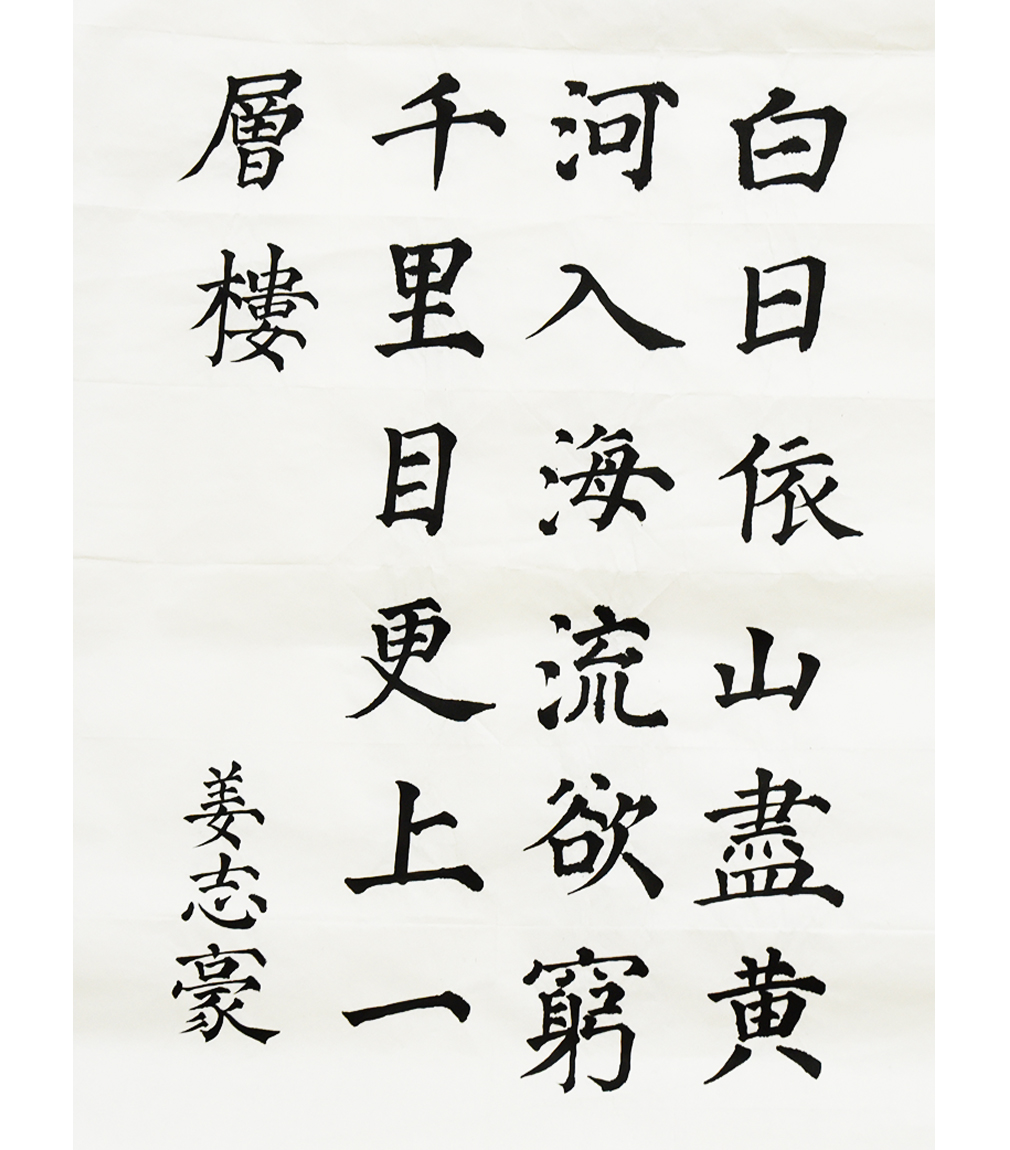 白日依山盡黄
河入海流欲窮
千里目更上一
層樓
姜志豪